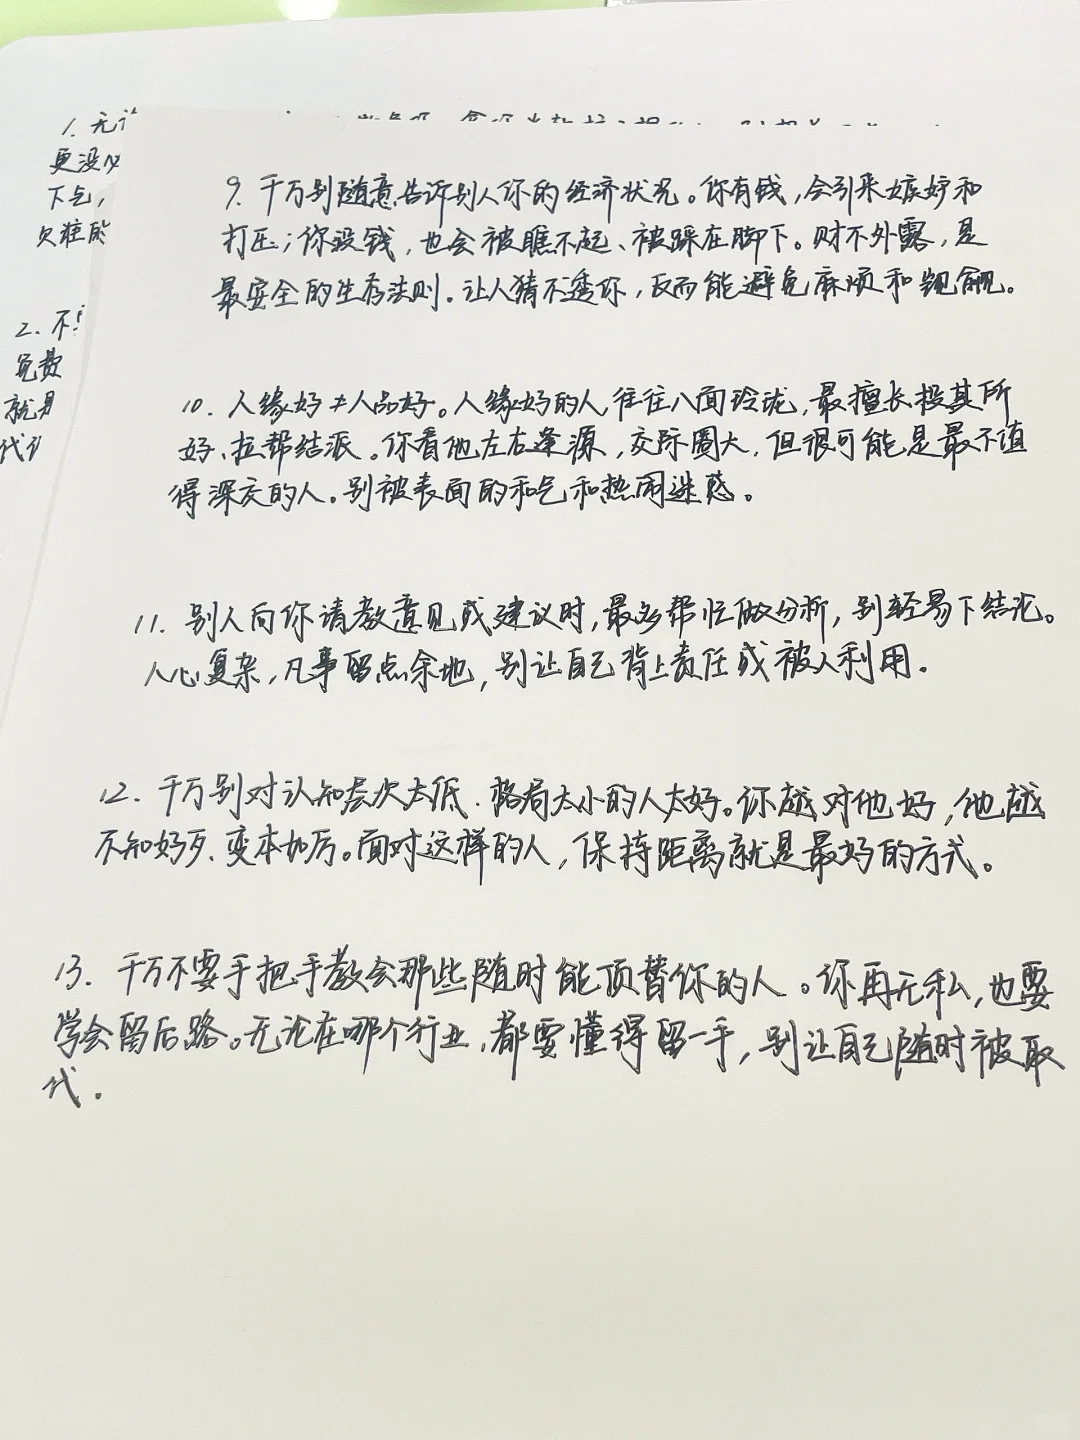 1. 无
更没必
下气，
欠谁的
2. 不
免费
就是
代
9. 千万别随意告诉别人你的经济状况。你有钱，会引来嫉妒和
打压；你没钱，也会被瞧不起、被踩在脚下。财不外露，是
最安全的生存法则。让人猜不透你，反而能避免麻烦和觊觎。
10. 人缘好≠人品好。人缘好的人往往八面玲珑，最擅长投其所
好、拉帮结派。你看他左右逢源，交际圈大，但很可能是最不值
得深交的人。别被表面的和气和热闹迷惑。
11. 别人向你请教意见或建议时，最多帮忙做分析，别轻易下结论。
人心复杂，凡事留点余地，别让自己背上责任或被人利用。
12. 千万别对认知层次太低、格局太小的人太好。你越对他好，他越
不知好歹、变本加厉。面对这样的人，保持距离就是最好的方式。
13. 千万不要手把手教会那些随时能顶替你的人。你再无私，也要
学会留后路。无论在哪个行业，都要懂得留一手，别让自己随时被取
代。